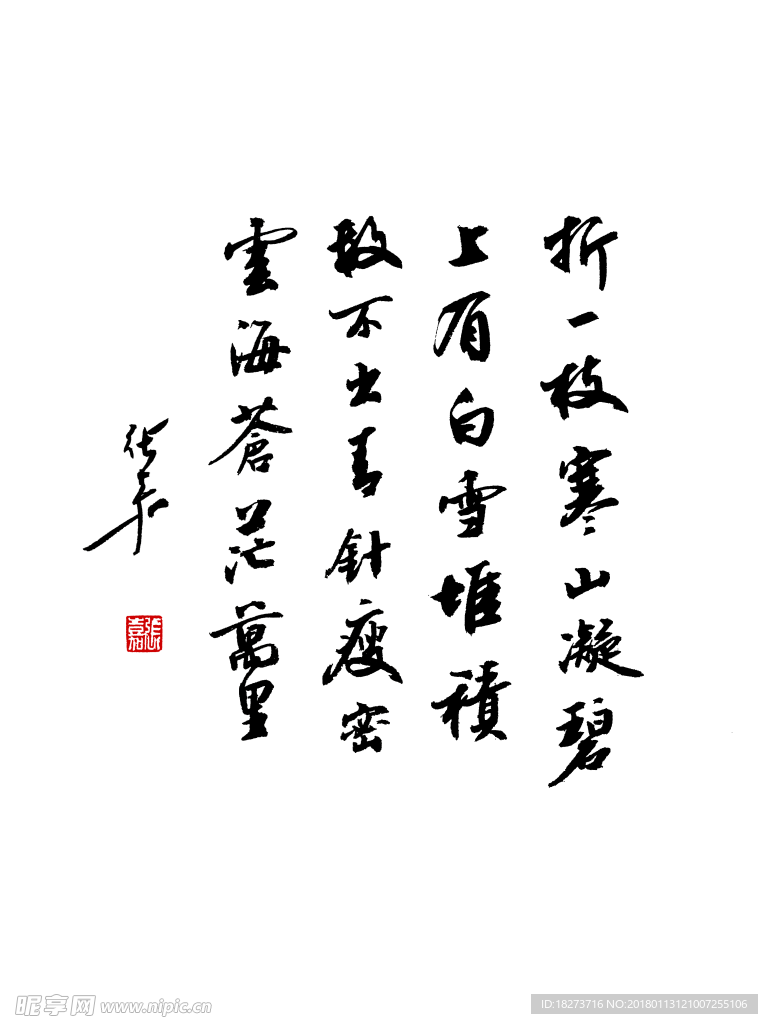 折一枝寒山凝碧
上有白雪堆積
数不出青針瘦密
雲海蒼茫萬里
张嘉
張嘉
昵享网 www.nipic.cn
ID:18273716 NO:20180113121007255106